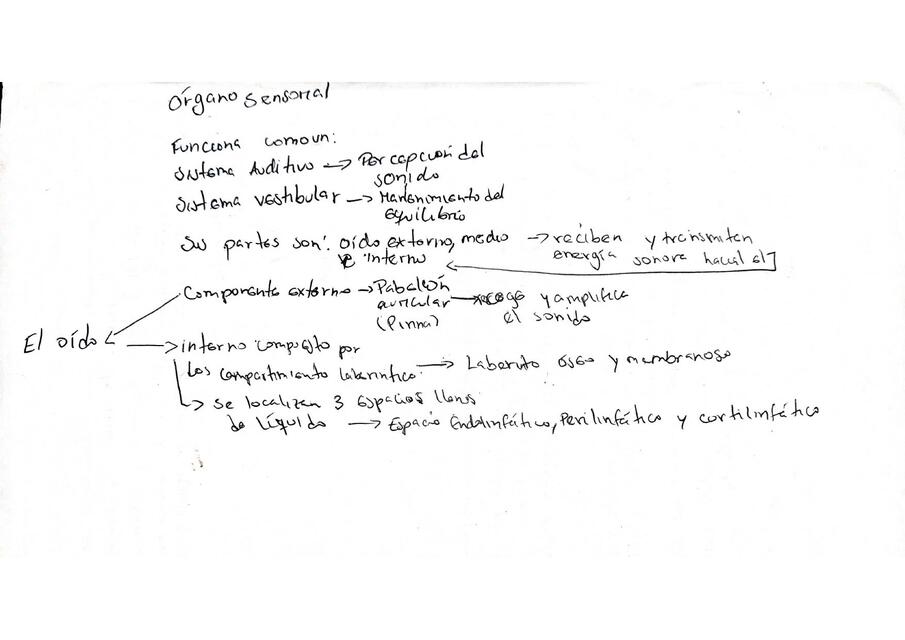 Órgano Sensorial
Funciona como un:
Sistema Auditivo → Percepción del
sonido
Sistema vestibular → Mantenimiento del
equilibrio
Sus partes son: oído externo, medio → reciben y transmiten
e interno energía sonora hacia el
Componente externo → Pabellón
auricular → recoge y amplifica
(Pinna) el sonido
El oído
→ interno compuesto por
los compartimiento laberíntico → Laberinto óseo y membranoso
→ Se localizan 3 espacios llenos
de líquido → Espacio Endolinfático, Perilinfático y cortilinfático